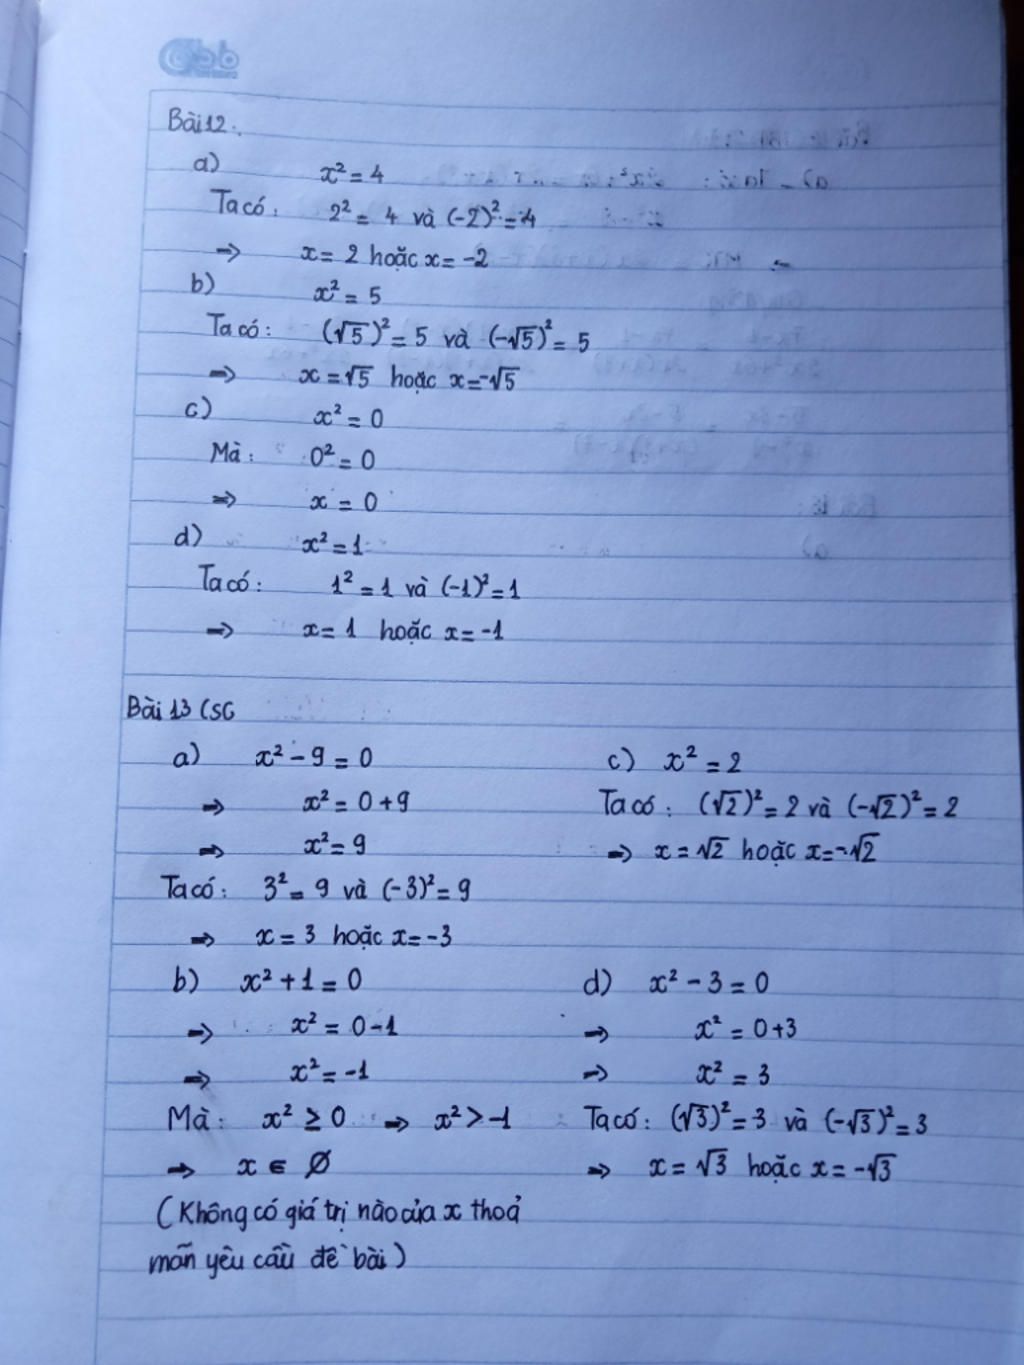 Bài 12:
a) x² = 4
Ta có: 2² = 4 và (-2)² = 4
=> x = 2 hoặc x = -2
b) x² = 5
Ta có: (√5)² = 5 và (-√5)² = 5
=> x = √5 hoặc x = -√5
c) x² = 0
Mà: 0² = 0
=> x = 0
d) x² = 1
Ta có: 1² = 1 và (-1)² = 1
=> x = 1 hoặc x = -1
Bài 13 (SG
a) x² - 9 = 0
=> x² = 0 + 9
=> x² = 9
Ta có: 3² = 9 và (-3)² = 9
=> x = 3 hoặc x = -3
b) x² + 1 = 0
=> x² = 0 - 1
=> x² = -1
Mà: x² ≥ 0 => x² > -1
=> x ∈ Ø
(Không có giá trị nào của x thoả
mãn yêu cầu đề bài)
c) x² = 2
Ta có: (√2)² = 2 và (-√2)² = 2
=> x = √2 hoặc x = -√2
d) x² - 3 = 0
=> x² = 0 + 3
=> x² = 3
Ta có: (√3)² = 3 và (-√3)² = 3
=> x = √3 hoặc x = -√3